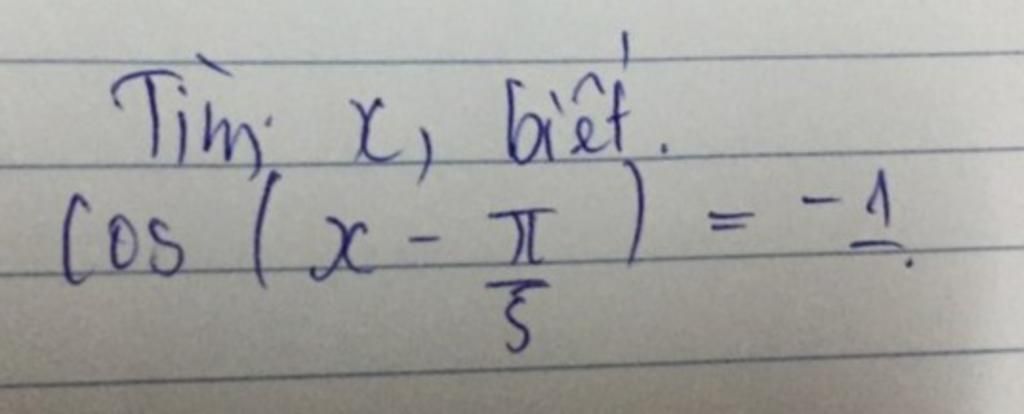 Tìm x, biết.
Cos (x - π/5) = -1.